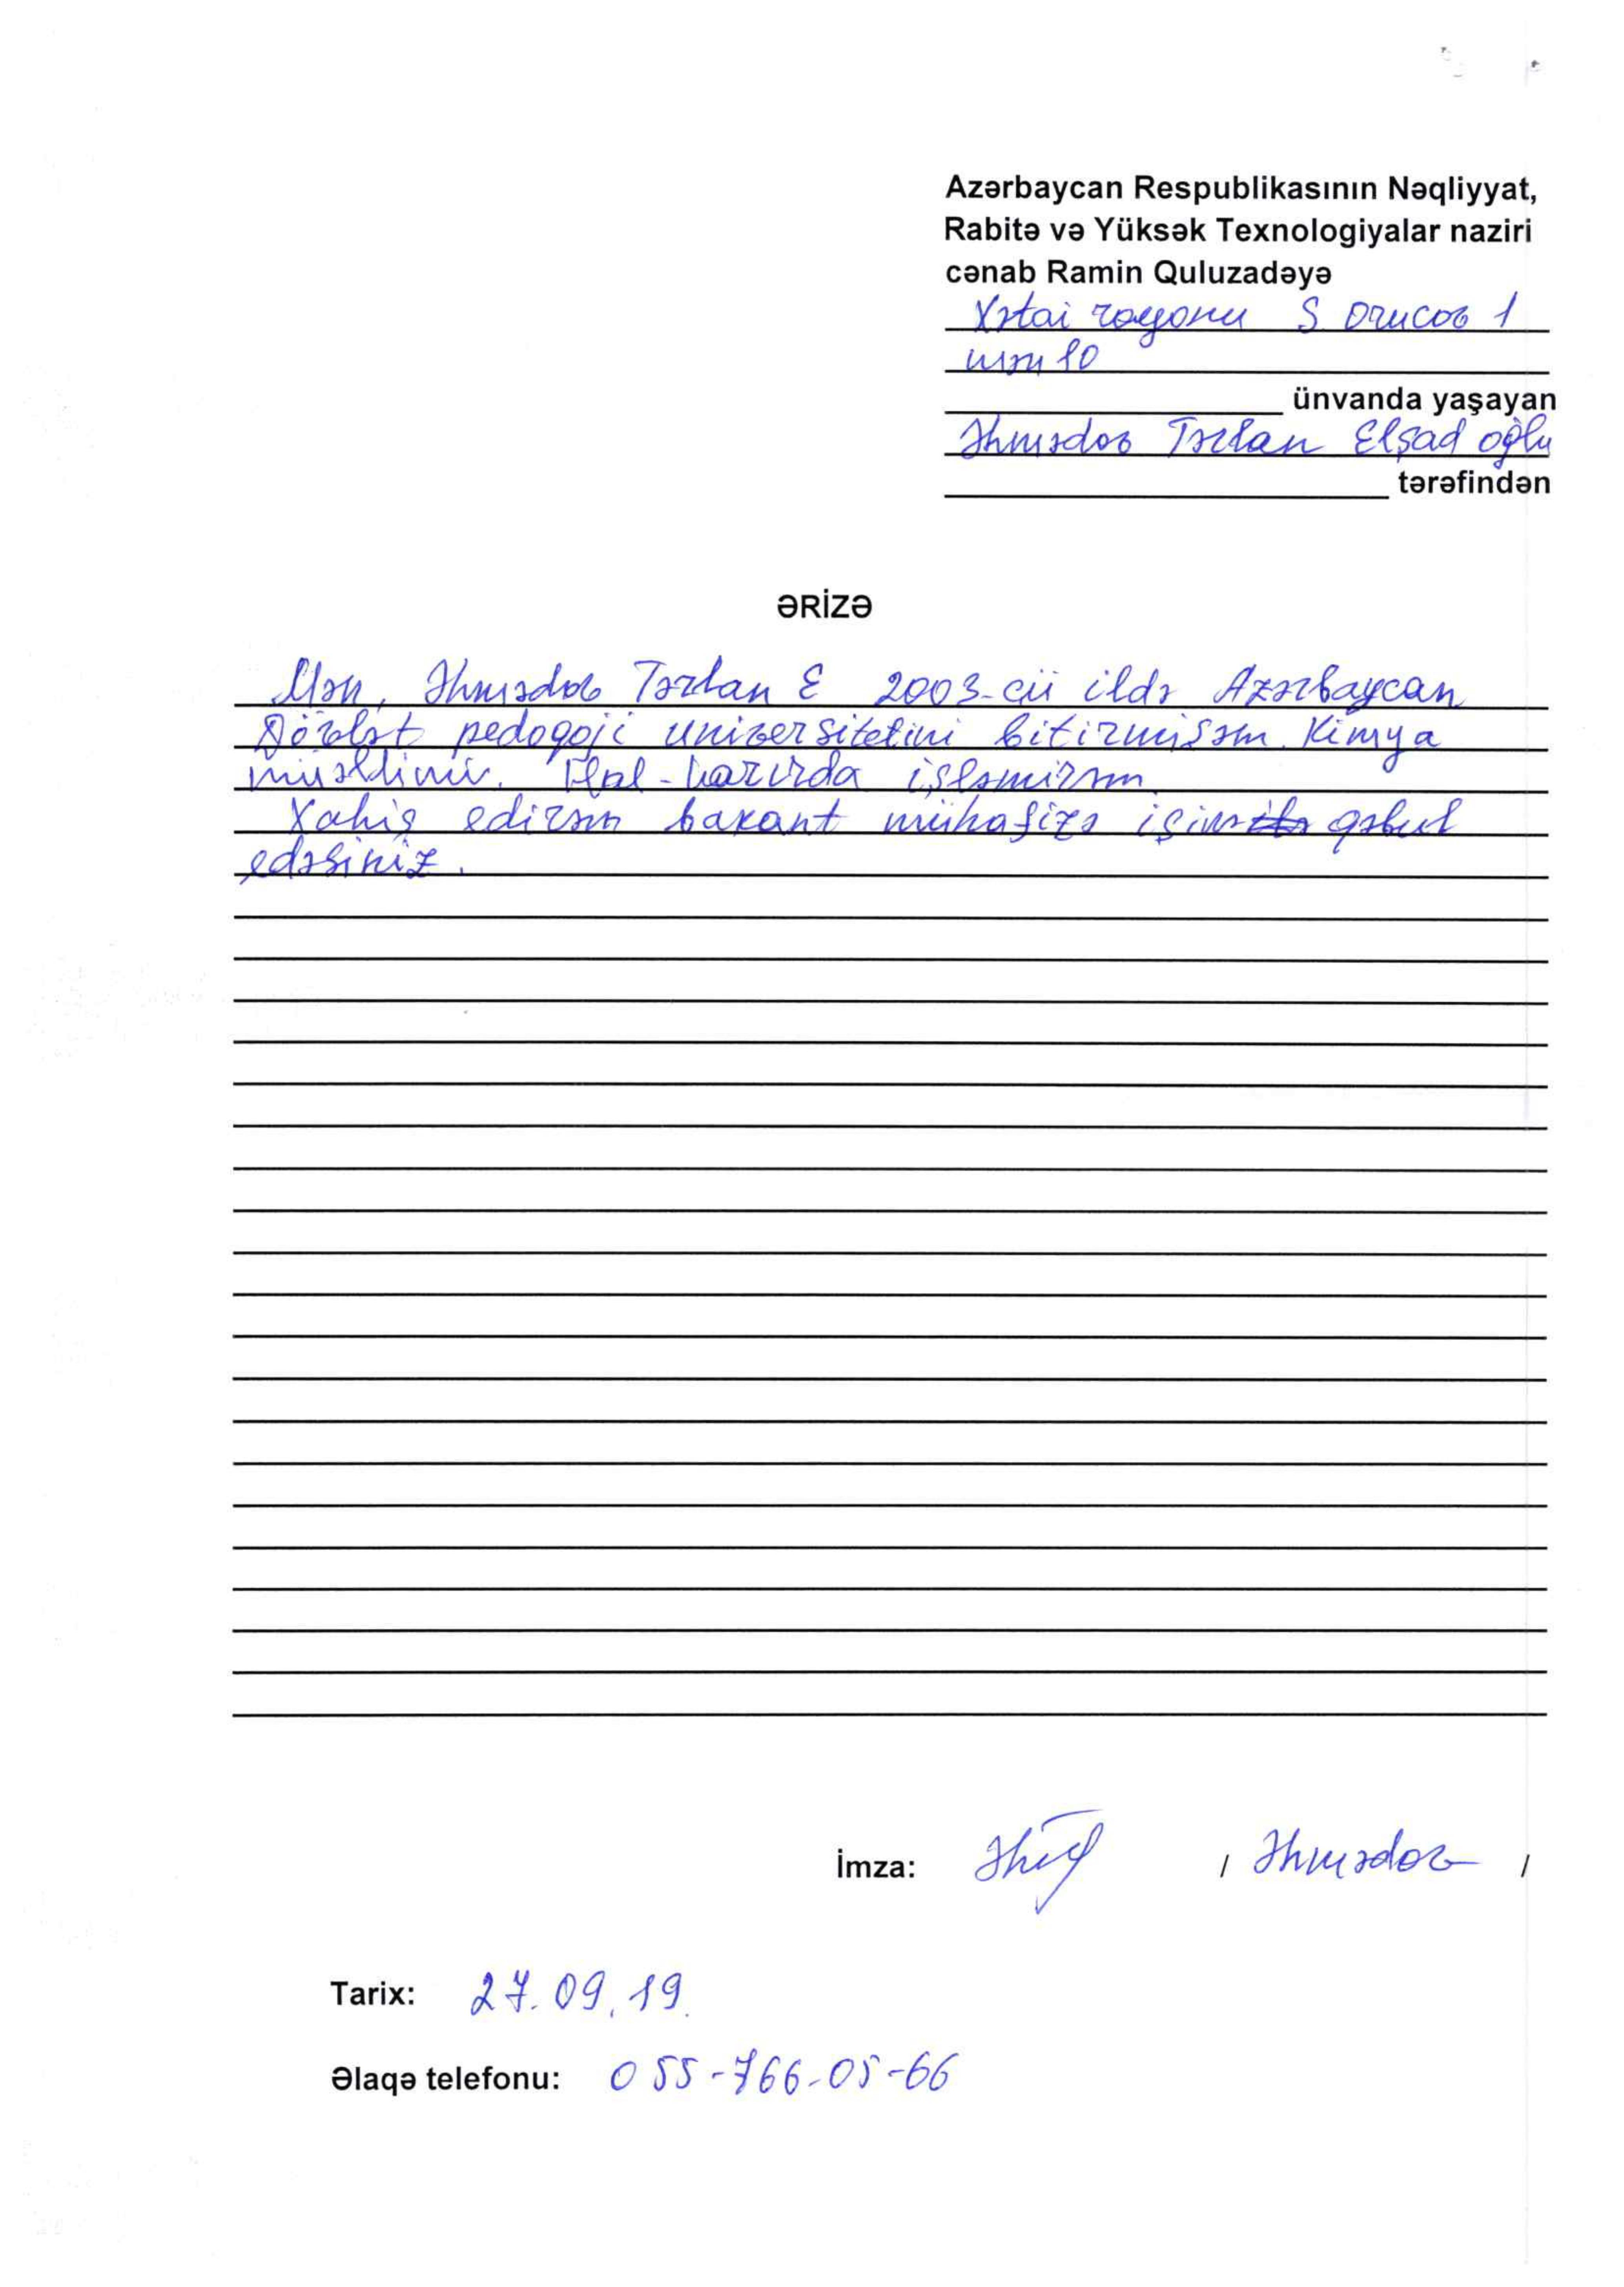 Azərbaycan Respublikasının Nəqliyyat,
Rabitə və Yüksək Texnologiyalar naziri
cənab Ramin Quluzadəyə
Xətai rayonu S Orucov 1
mən 80
ünvanda yaşayan
Əhmədov Tərlan Elşad oğlu
tərəfindən
ƏRİZƏ
Mən, Əhmədov Tərlan E 2003-cü ildə Azərbaycan
Dövlət pedoqoji universitetini bitirmişəm. Kimya
müəllimi. Hal-hazırda işləmirəm.
Xahiş edirəm vakant mühafizə işinə qəbul
edəsiniz.
İmza: / Əhmədov /
Tarix: 27.09.19.
Əlaqə telefonu: 055-766-05-66